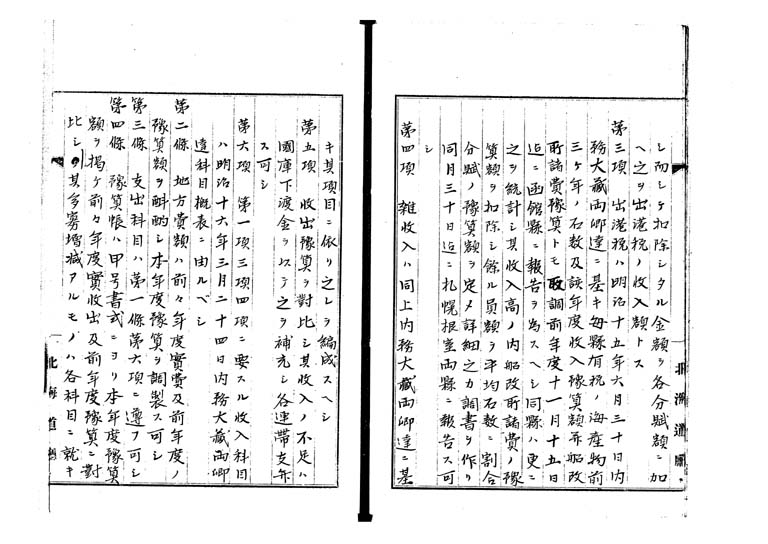 シ而シテ扣除シタル金額ヲ各分賦額ニ加
ヘ之ヲ出港税ノ收入額トス
第三項 出港税ハ明治十五年六月三十日内
務大藏両卿達ニ基キ毎縣有税ノ海産物前
三ケ年ノ石数及該年度收入豫算額并船改
所諸費豫算トモ取調前年度十一月十五日
迠ニ函館縣ニ報告ヲ為スヘシ同縣ハ更ニ
之ヲ統計シ其收入高ノ内船改所諸費ノ豫
算額ヲ扣除シ餘ル員額ヲ平均石数ニ割合
分賦ノ豫算額ヲ定メ詳細之カ調書ヲ作リ
同月三十日迠ニ札幌根室両縣ニ報告ス可
シ
第四項 雑收入ハ同上内務大藏両卿達ニ基
キ其項目ニ依リ之レヲ編成スヘシ
第五項 收出豫算ヲ對比シ其收入ノ不足ハ
國庫下渡金ヲ以テ之ヲ補充シ各連帯支弁
ス可シ
第六項 第一項三項四項ニ要スル收入科目
ハ明治十六年三月二十四日内務大藏両卿
達科目概表ニ由ルベシ
第二條 地方費額ハ前々年度實費及前年度ノ
豫算額ヲ斟酌シ本年度豫算ヲ調製ス可シ
第三條 支出科目ハ第一條第六項ニ遵フ可シ
第四條 豫算帳ハ甲号書式ニヨリ本年度豫算
額ヲ掲ケ前々年度實收出及前年度豫算ニ對
比シ其多寡増減アルモノハ各科目ニ就キ
北海道廳